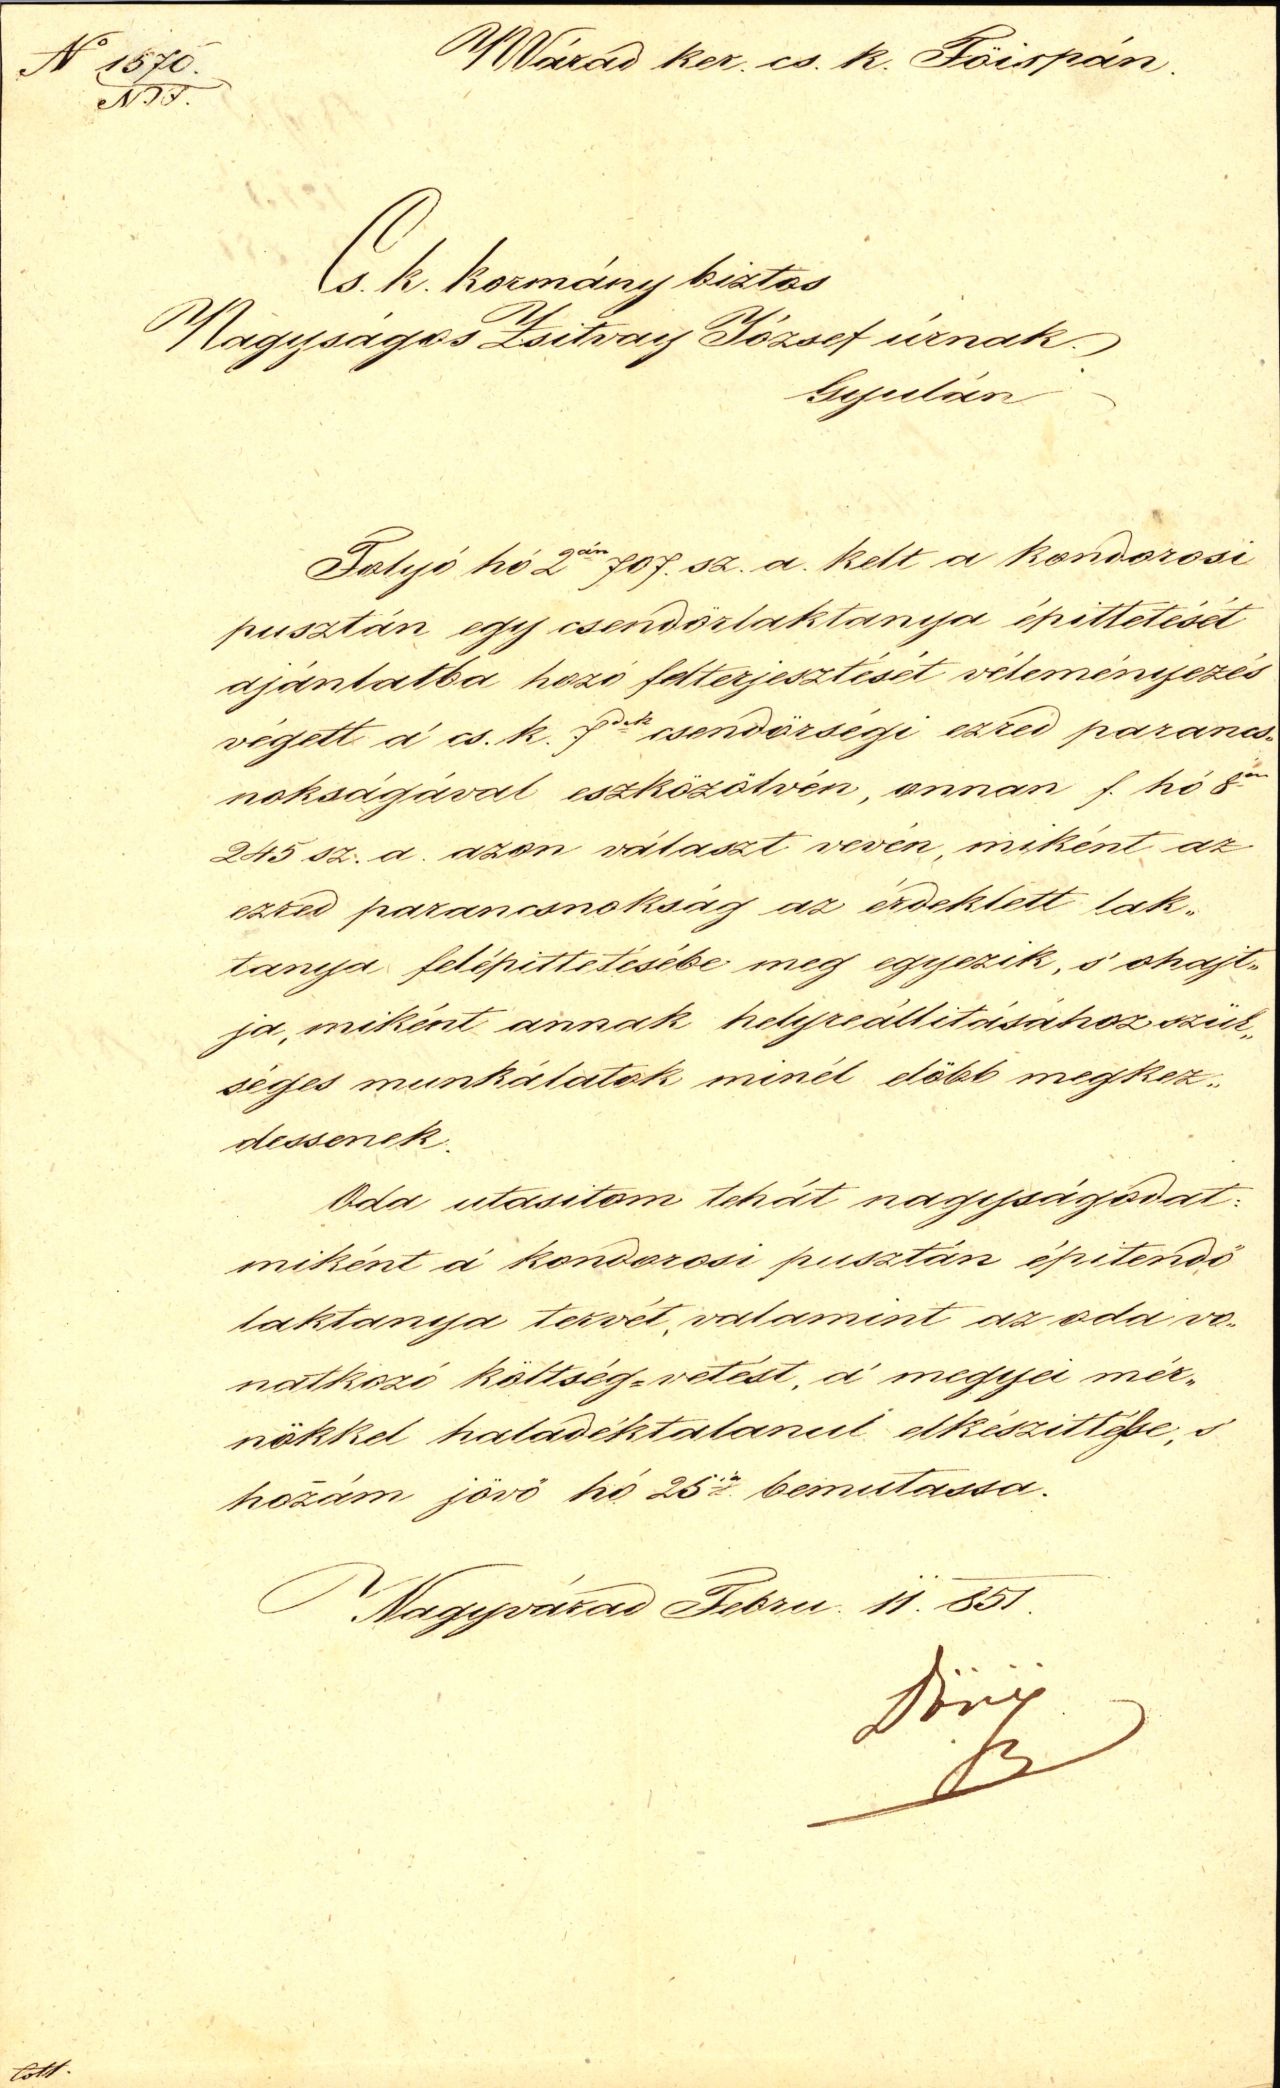 Nº 1570.
N.V.
NVárad ker. cs. k. Föispán.
Cs. k. kormány biztos
Nagyságos Zsitvay József úrnak.
Gyulán
Folyó hó 2án 707. sz. a. kelt a kondorosi
pusztán egy csendörlaktanya épittetését
ajánlatba hozó felterjesztését véleményezés
végett a' cs. k. 7dik csendörségi ezred parancs„
nokságával eszközölvén, onnan f. hó 8án
245 sz. a. azon választ vevén, miként az
ezred parancsnokság az érdeklett lak„
tanya felépittetésébe meg egyezik, s' ohajt„
ja, miként annak helyreállitásához szük„
séges munkálatok minél elöbb megkez„
dessenek.
Oda utasitom tehát nagyságodat:
miként a' kondorosi pusztán épitendö
laktanya tervét, valamint az oda vo„
natkozó költség=vetést, a' megyei mér„
nökkel haladéktalanul elkészittesse, s
hozám jövö hó 25ig bemutassa.
Nagyvárad Febru. 11. 851.
Döry
Cott.